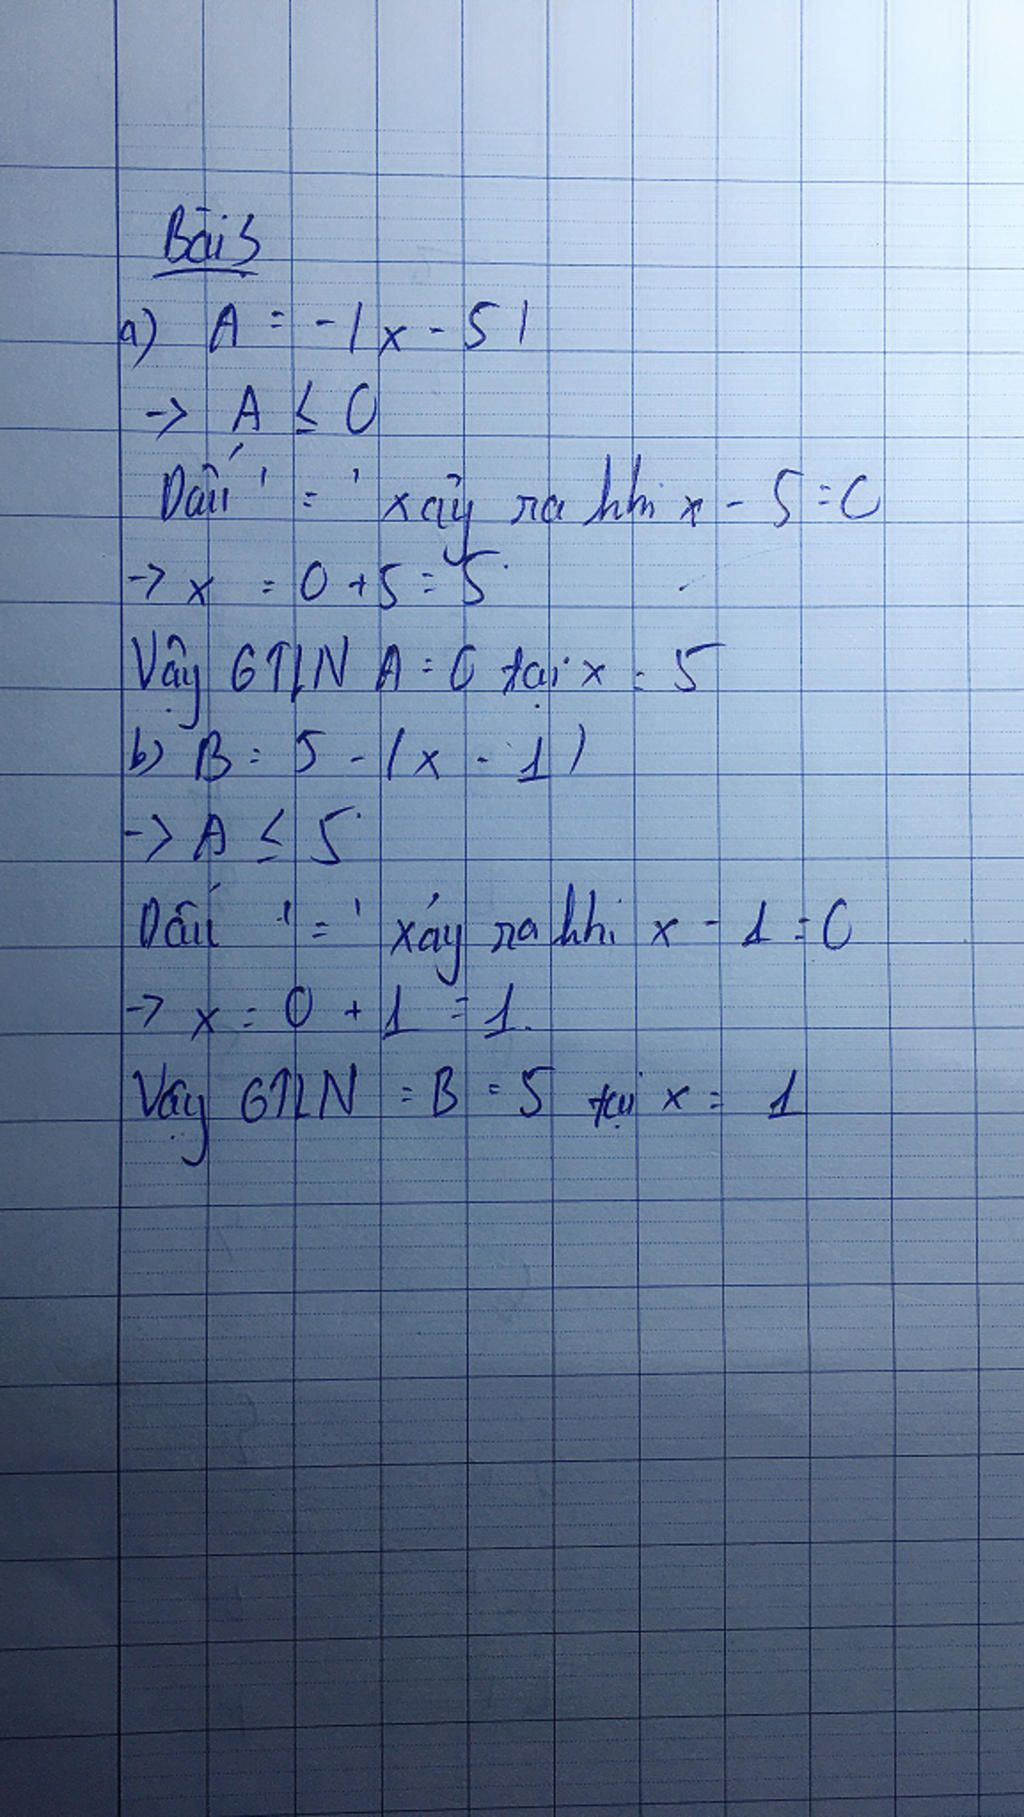 Bài 3
a) A = -|x - 5|
-> A ≤ 0
Dấu '=' xảy ra khi x - 5 = 0
-> x = 0 + 5 = 5
Vậy GTLN A = 0 tại x = 5
b) B = 5 - |x - 1|
-> A ≤ 5
Dấu '=' xảy ra khi x - 1 = 0
-> x = 0 + 1 = 1.
Vậy GTLN = B = 5 tại x = 1